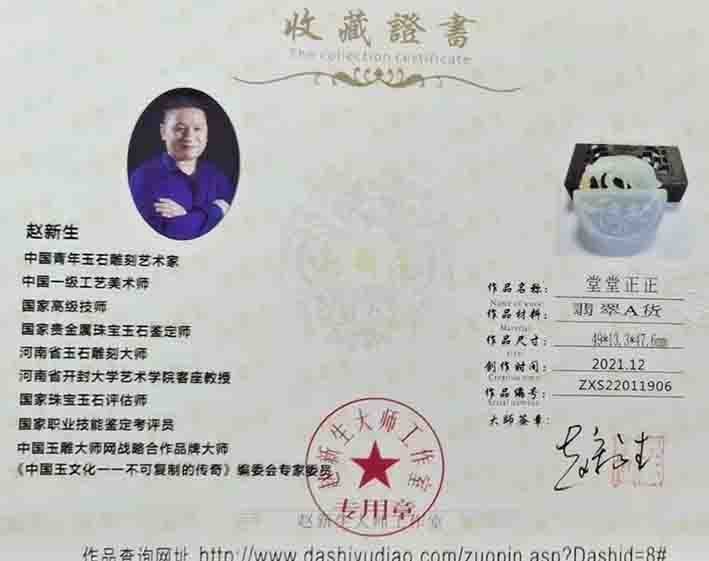 收藏證書
The collection certificate
赵新生
中国青年玉石雕刻艺术家
中国一级工艺美术师
国家高级技师
国家贵金属珠宝玉石鉴定师
河南省玉石雕刻大师
河南省开封大学艺术学院客座教授
国家珠宝玉石评估师
国家职业技能鉴定考评员
中国玉雕大师网战略合作品牌大师
《中国玉文化一一不可复制的传奇》编委会专家委员
作品名称： 堂堂正正
Name of work
作品材料： 翡翠A货
Material
作品尺寸： 49*13.3*47.6mm
size
创作时间： 2021.12
Creation time
作品编号： ZXS22011906
Serial number
大师签章：
赵新生
赵新生大师工作室
专用章
赵新生大师工作室
作品查询网址 http://www.dashiyudiao.com/zuopin.asp?Dashid=8#